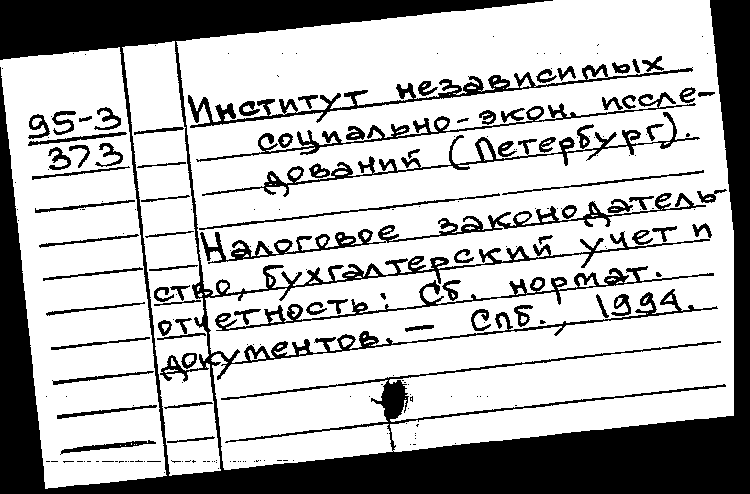 95-3
373
Институт независимых
социально-экон. иссле-
дований (Петербург).
Налоговое законодатель-
ство, бухгалтерский учет и
отчетность: Сб. нормат.
документов. — Спб., 1994.